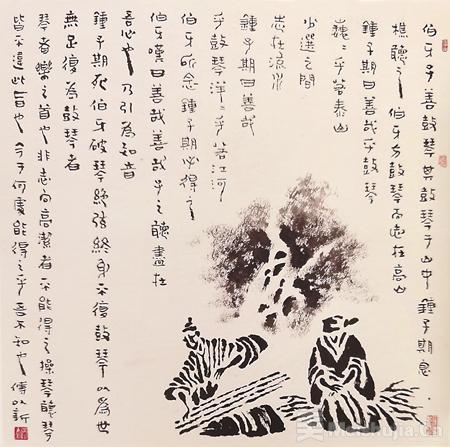 伯牙子善鼓琴其鼓琴于山中鍾子期息
樵聽之伯牙方鼓琴而志在高山
鍾子期曰善哉乎鼓琴
巍〻乎若泰山
少選之間
志在流水
鍾子期曰善哉
乎鼓琴洋〻乎若江河
伯牙所念鍾子期必得之
伯牙嘆曰善哉善哉子之聽盡在
吾心也乃引為知音
鍾子期死伯牙破琴絶弦終身不復鼓琴以為世
無足復為鼓琴者
琴者樂之首也非志向高潔者不能得之操琴聽琴
皆不違此旨也今于何處能得之乎吾不知也傅以新
Meishujia.cn